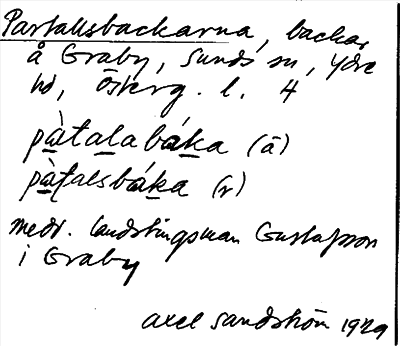 Partallsbackarna, backar
å Graby, Sunds sn, Ydre
hd, Österg. l. 4
pàtalabáka (ä)
pàtalsbáka (r)
medd. landstingsman Gustafsson
i Graby
Axel Sandström 1929